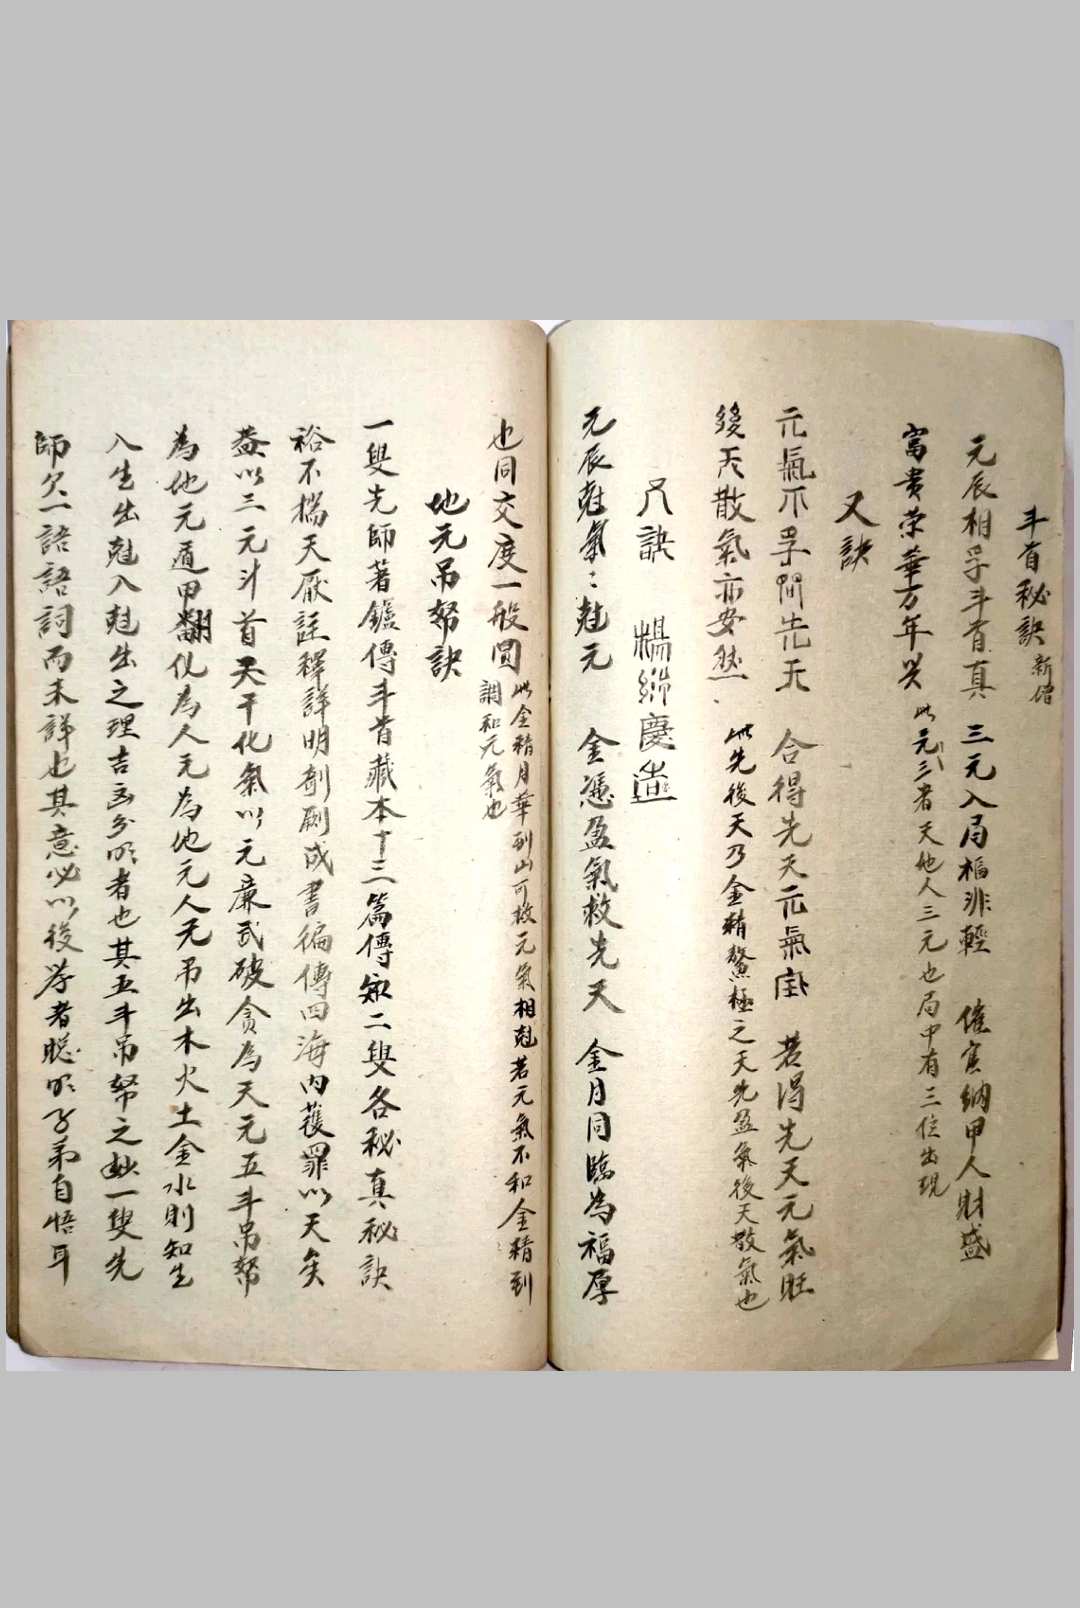 斗首秘訣 新增
元辰相孚斗首真 三元入局福非輕 催官納甲人財盛
富貴荣華万年兴 此元三者天地人三元也局中有三位出現
又訣
元氣不孚間先天 合得先天元氣 若得先天元氣旺
後天散氣亦安然 此先後天乃金精鰲極之天先盈氣後天散氣也
又訣 楊 慶造
元辰尅氣〻尅元 金憑盈氣救先天 金月同臨為福厚
也同交度一般圓 此金精月華到山可救元氣相尅若元氣不和金精到
調和元氣也
地元吊帑訣
一叟先師著鑑傳斗首藏本十三篇傳知二叟各秘真秘訣
裕不揣天厭註釋詳明剞劂成書徧傳四海内獲罪以天矣
蓋以三元斗首天干化氣以元廉武破貪為天元五斗吊帑
為地元遁甲翻化為人元為地元人元吊出木火土金水則知生
入生出尅入尅出之理吉凶分明者也其五斗吊帑之妙一叟先
師欠一語語詞而未詳也其意必以後学者聰明子弟自悟耳